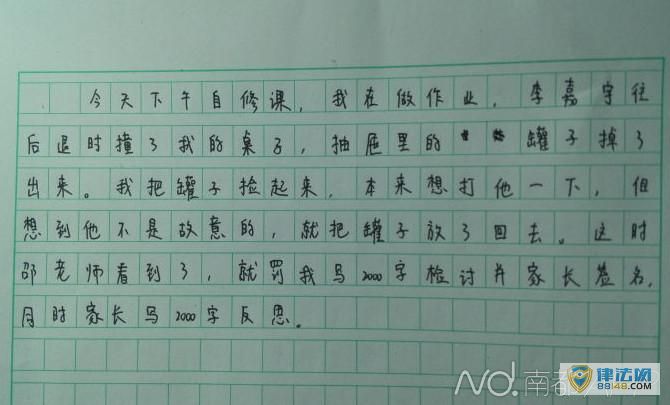 今天下午自修课，我在做作业，李嘉宇往
后退时撞了我的桌子，抽屉里的罐子掉了
出来。我把罐子捡起来，本来想打他一下，但
想到他不是故意的，就把罐子放了回去。这时
邵老师看到了，就罚我写2000字检讨并家长签名，
同时家长写2000字反思。
南都
律法网
88148.com